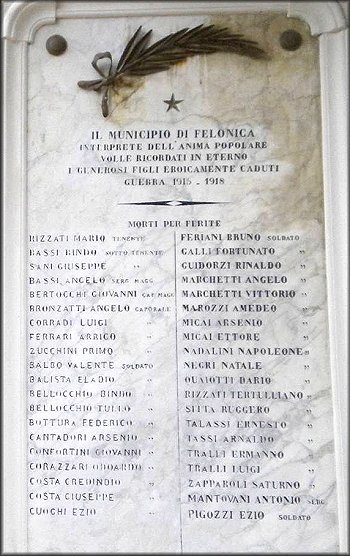 IL MUNICIPIO DI FELONICA
INTERPRETE DELL'ANIMA POPOLARE
VOLLE RICORDATI IN ETERNO
I GENEROSI FIGLI EROICAMENTE CADUTI
GUERRA 1915-1918
MORTI PER FERITE
RIZZATI MARIO TENENTE
BASSI BINDO SOTTO TENENTE
SANI GIUSEPPE "
BASSI ANGELO SERG. MAGG.
BERTOCCHI GIOVANNI CAP. MAGG.
BRONZATTI ANGELO CAPORALE
CORRADI LUIGI "
FERRARI ARRIGO "
ZUCCHINI PRIMO "
BALBO VALENTE SOLDATO
BALISTA ELADIO "
BELLOCCHIO BINDO "
BELLOCCHIO TULLO "
BOTTURA FEDERICO "
CANTADORI ARSENIO "
CONFORTINI GIOVANNI "
CORAZZARI ODOARDO "
COSTA CREDINDIO "
COSTA GIUSEPPE "
CUOGHI EZIO "
FERIANI BRUNO SOLDATO
GALLI FORTUNATO "
GUIDORZI RINALDO "
MARCHETTI ANGELO "
MARCHETTI VITTORIO "
MAROZZI AMEDEO "
MICAI ARSENIO "
MICAI ETTORE "
NADALINI NAPOLEONE "
NEGRI NATALE "
QUAIOTTI DARIO "
RIZZATI TERTULLIANO "
SITTA RUGGERO "
TALASSI ERNESTO "
TASSI ARNALDO "
TRALLI ERMANNO "
TRALLI LUIGI "
ZAPPAROLI SATURNO "
MANTOVANI ANTONIO SERG.
PIGOZZI EZIO SOLDATO